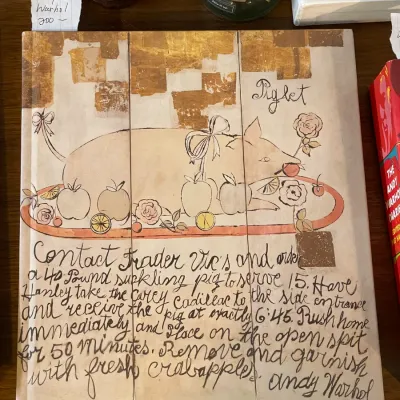 Warhol
200 —
Piglet
Contact Trader Vic's and order
a 40 Pound suckling pig to serve 15. Have
Hanley take the Carey Cadillac to the side entrance
and receive the pig at exactly 6:45. Rush home
immediately and place on the open spit
for 50 minutes. Remove and garnish
with fresh crabapples. Andy Warhol
THE
ANDY